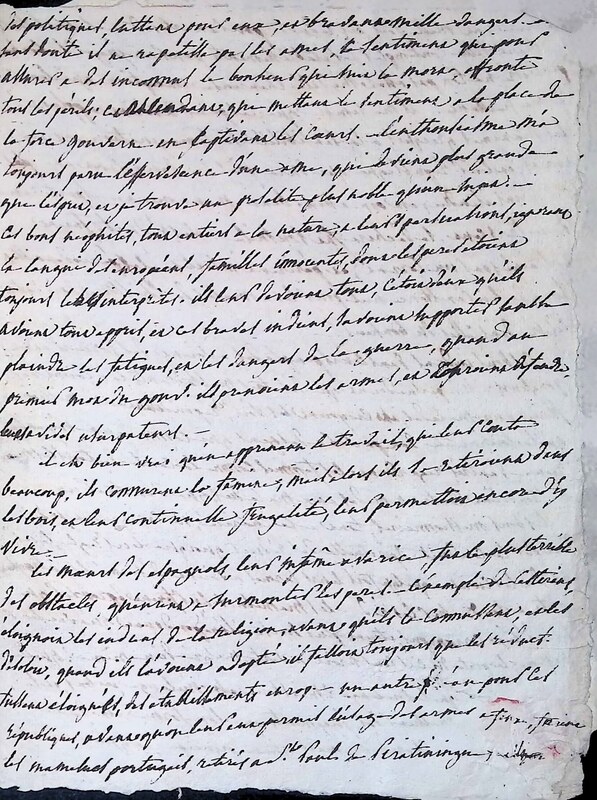 des politiques, luttans pour eux, et bravans mille dangers. -
sans doute il ne rapetisse pas les ames, le sentiment qui pour
assurer a des inconnus le bonheur que suit la mort, affronte
tous les périls; et que mettant le sentiment a la place de
la force gouverne en captivant les cœurs. - l'enthousiasme m'a
toujours paru l'effervescence d'une ame, que devient plus grande
que l'espèce, et je trouve un proselite plus noble qu'un
Ces bons néophites, tous entiers a la nature, a leurs persécutions, ignorant
la langue des européens, familles innocentes, dont les peres étoient
toujours les interpretes. ils leur devoient tout, c'étoit d'eux qu'ils
avoient tout appris, et ces braves indiens, savoient supporter sans se
plaindre les fatigues, et les dangers de la guerre, quand au
premier mot du gouv. ils prenoient les armes, et défendre
leurs usurpateurs. -
il est bien vrai qu'en apprenant le travail, que leur coute
beaucoup, ils connurent la famine, mais alors ils se retiroient dans
les bois, et leur continuelle frugalité, leur permettoit encore d'y
vivre. -
Les mœurs des espagnols, leur infâme avarice, fut le plus terrible
des obstacles qu'eurent a surmonter les peres - l'exemple de
éloignoit les indiens de la religion, avant qu'ils le connussent, et les
quand ils l'avoient adopté il falloit toujours que les réduct.
fussent éloignées, des établissements europ - un autre pour ces
républiques, avant qu'on leur eut permis l'usage des armes a feu,
les mamelus portugais, retirés a St. Paul de Piratiningue,